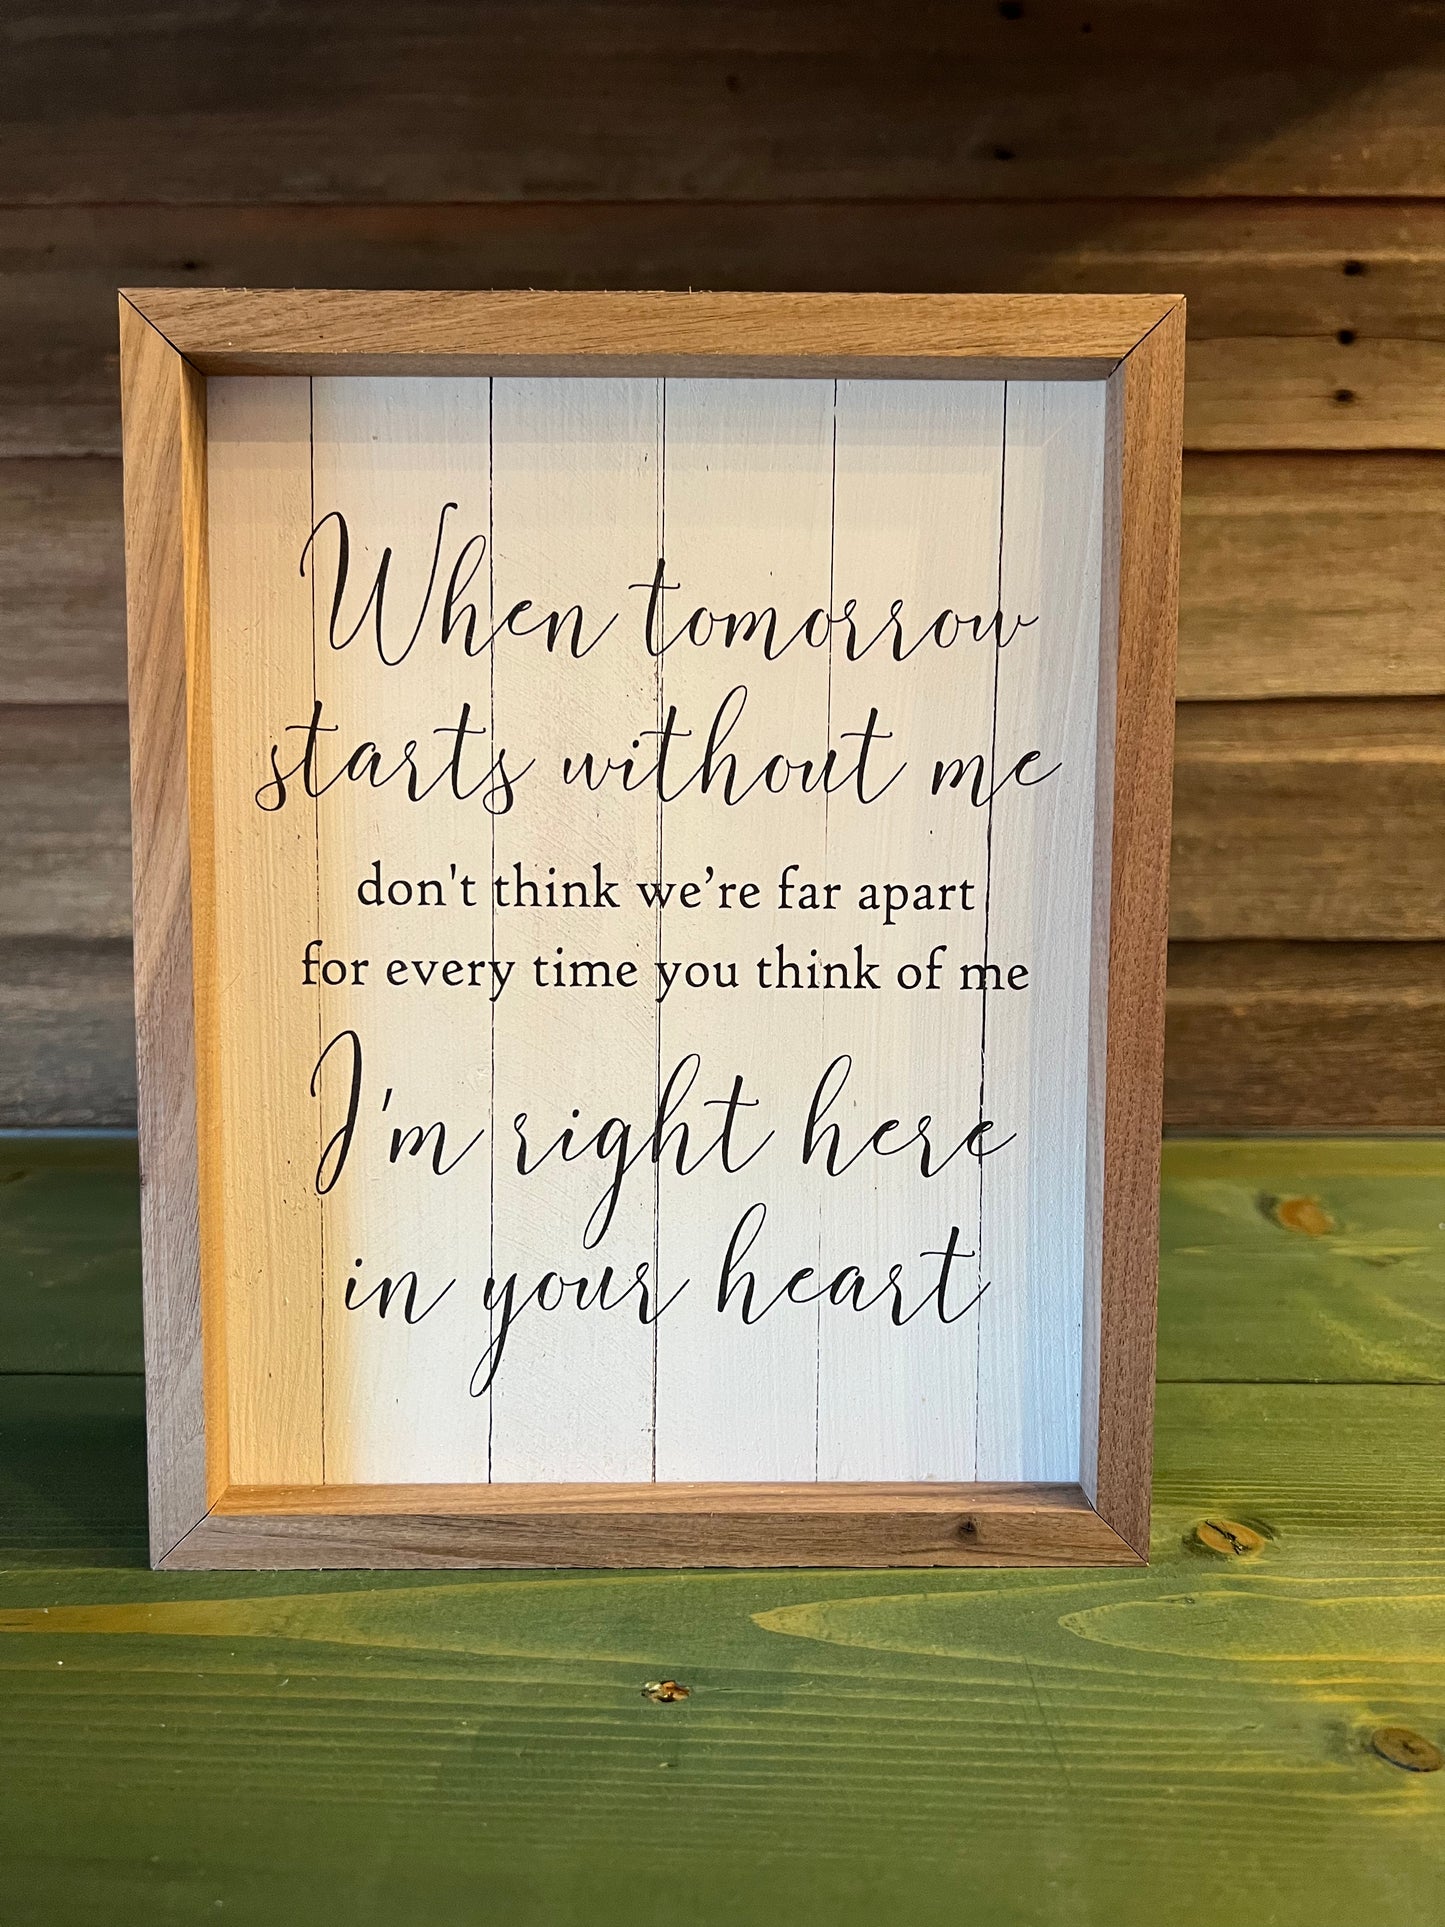 When tomorrow
starts without me
don't think we’re far apart
for every time you think of me
I'm right here
in your heart